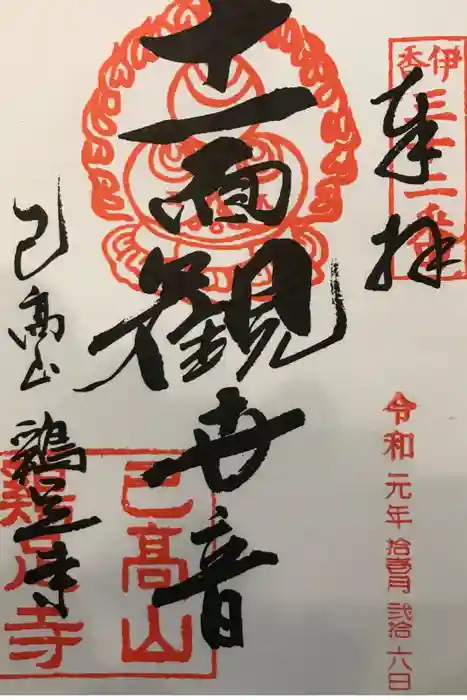 奉拝
伊香三十二番
令和元年拾壱月弐拾六日
十一面観世音
己高山鶏足寺
己高山
鶏足寺